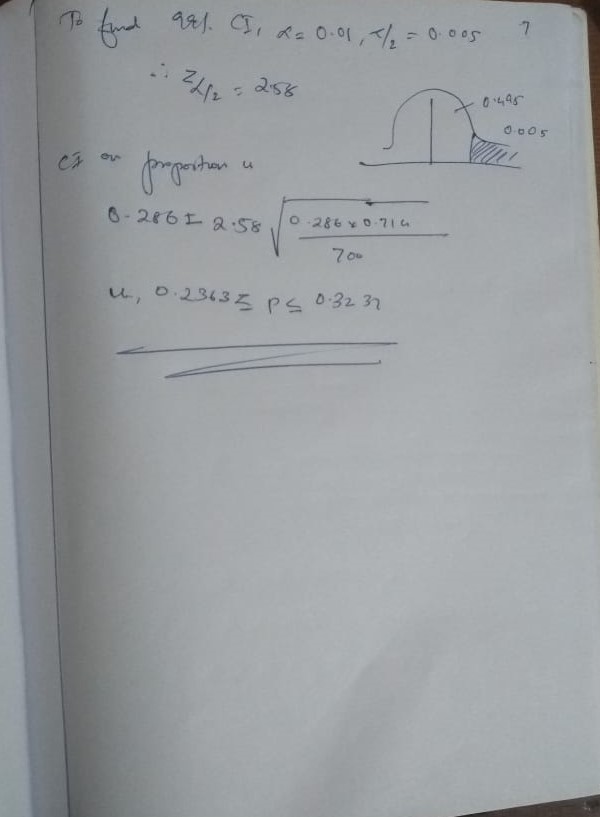 To find 99%. CI, α = 0.01, α/2 = 0.005
∴ Zα/2 = 2.58
0.495
0.005
CI on proportion is
0.286 ± 2.58 √ 0.286 × 0.714
700
0.2363 ≤ p ≤ 0.3237